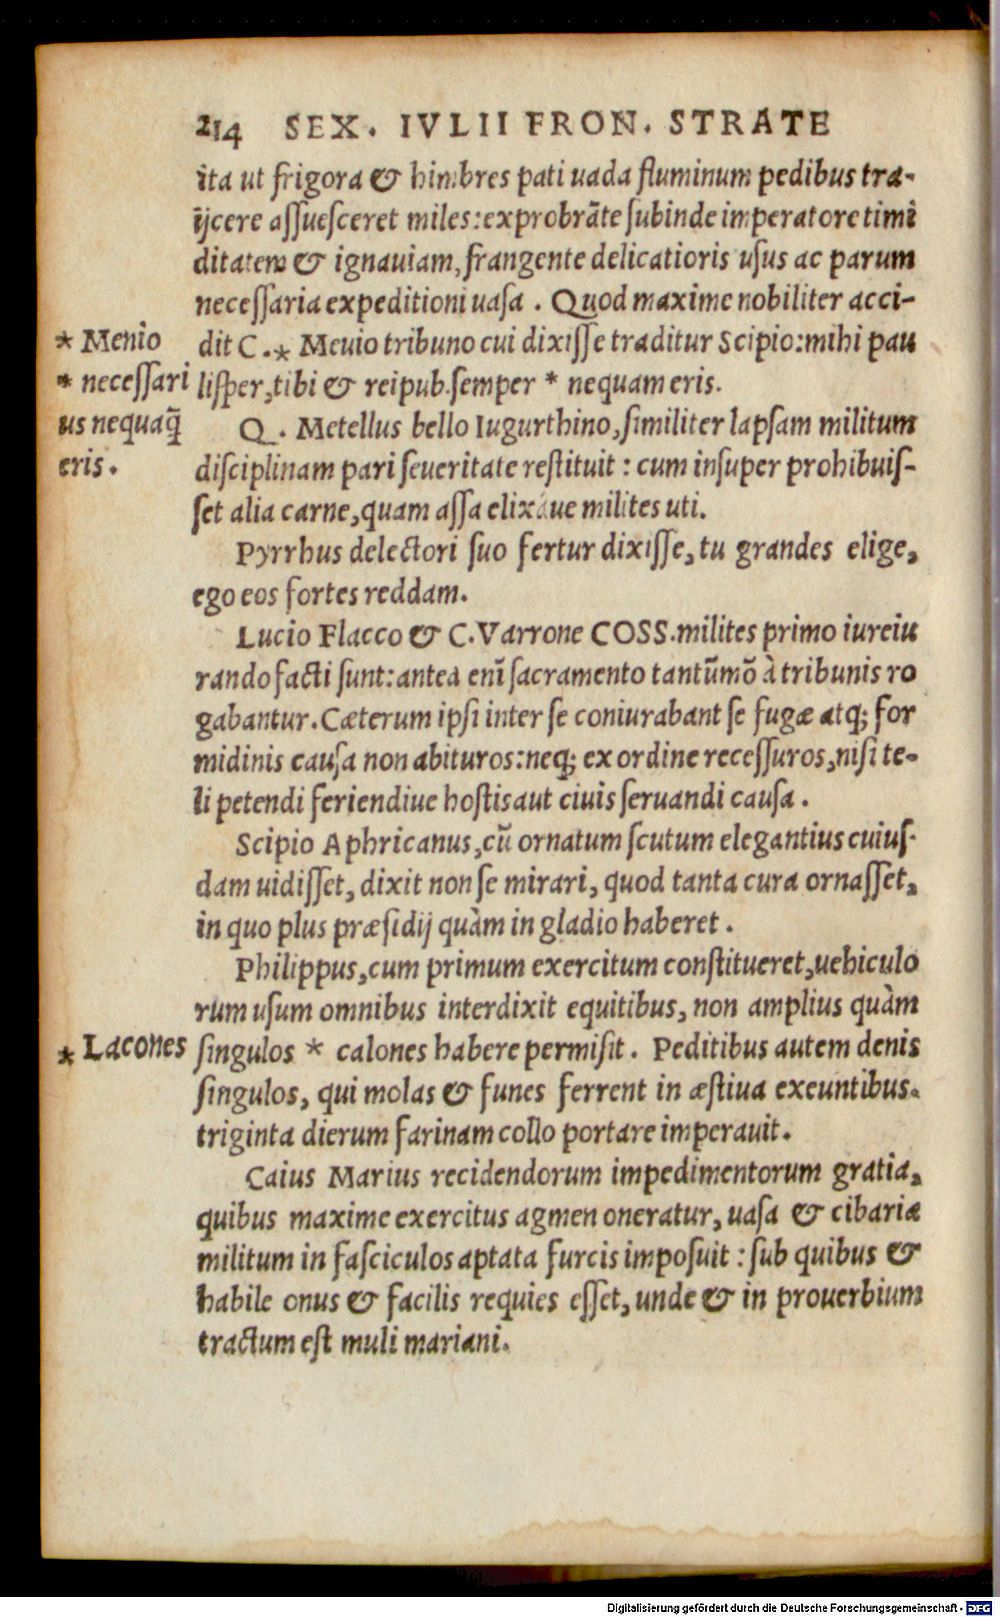 214 SEX. IVLII FRON. STRATE
ita ut frigora & himbres pati uada fluminum pedibus tra-
ijcere assuesceret miles: exprobrāte subinde imperatore timi
ditatem & ignauiam, frangente delicatioris usus ac parum
necessaria expeditioni uasa. Quod maxime nobiliter acci-
* Menio
dit C. * Meuio tribuno cui dixisse traditur Scipio: mihi pau
* necessari
lisper, tibi & reipub. semper * nequam eris.
us nequaq̃
Q. Metellus bello Iugurthino, similiter lapsam militum
eris.
disciplinam pari seueritate restituit: cum insuper prohibuis-
set alia carne, quam assa elixáue milites uti.
Pyrrhus delectori suo fertur dixisse, tu grandes elige,
ego eos fortes reddam.
Lucio Flacco & C. Varrone COSS. milites primo iureiu
rando facti sunt: antea enī sacramento tantūmō à tribunis ro
gabantur. Cæterum ipsi inter se coniurabant se fugæ atq; for
midinis causa non abituros: neq; ex ordine recessuros, nisi te-
li petendi feriendiue hostis aut ciuis seruandi causa.
Scipio Aphricanus, cū ornatum scutum elegantius cuius-
dam uidisset, dixit non se mirari, quod tanta cura ornasset,
in quo plus præsidij quàm in gladio haberet.
Philippus, cum primum exercitum constitueret, uehiculo
rum usum omnibus interdixit equitibus, non amplius quàm
* Lacones
singulos * calones habere permisit. Peditibus autem denis
singulos, qui molas & funes ferrent in æstiua exeuntibus.
triginta dierum farinam collo portare imperauit.
Caius Marius recidendorum impedimentorum gratia,
quibus maxime exercitus agmen oneratur, uasa & cibaria
militum in fasciculos aptata furcis imposuit: sub quibus &
habile onus & facilis requies esset, unde & in prouerbium
tractum est muli mariani.
Digitalisierung gefördert durch die Deutsche Forschungsgemeinschaft - DFG